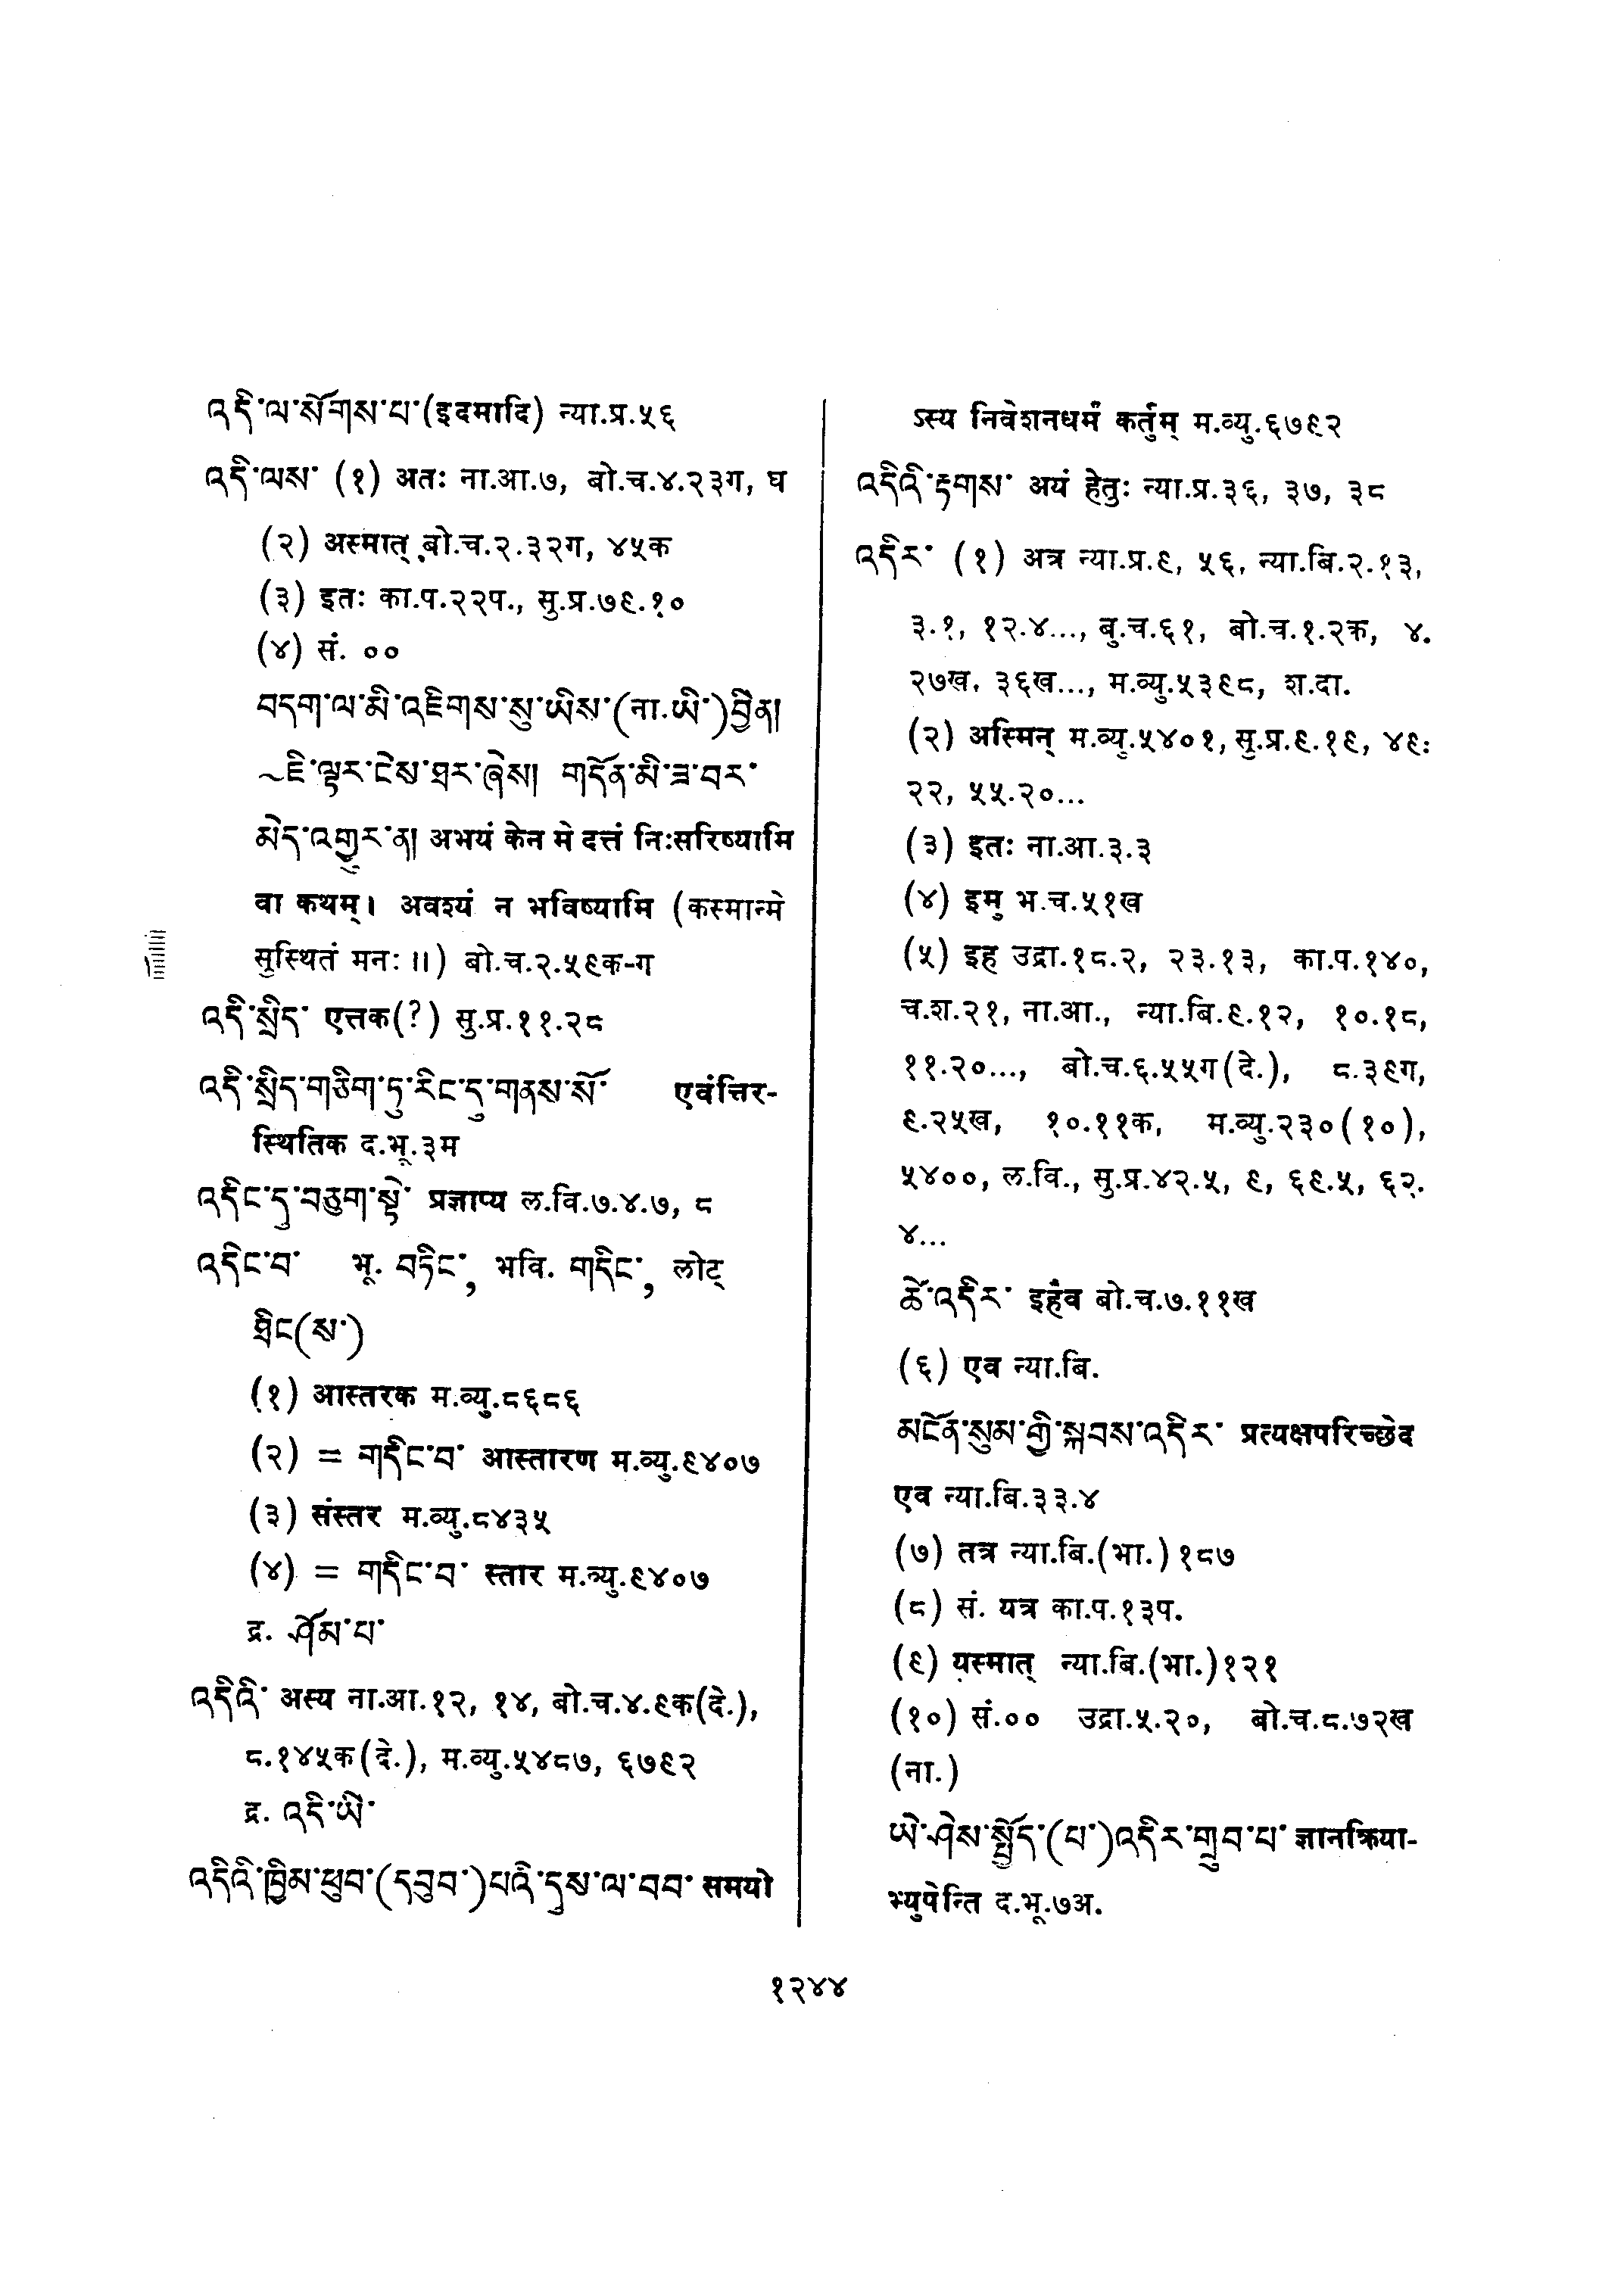 འདི་ལ་སོགས་པ་(इदमादि) न्या.प्र.५६
འདི་ལས་ (१) अतः ना.आ.७, बो.च.४.२३ग, घ
(२) अस्मात् बो.च.२.३२ग, ४५क
(३) इतः का.प.२२प., सु.प्र.७९.१०
(४) सं. ००
བདག་ལ་མི་འཇིགས་སུ་ཡིས་(ना.ཡི་)བྱིན།
~ཇི་ལྟར་ངེས་ཐར་ཞེས། གདོན་མི་ཟ་བར་
མེད་འགྱུར་ན། अभयं केन मे दत्तं निःसरिष्यामि
वा कथम्। अवश्यं न भविष्यामि (कस्मान्मे
सुस्थितं मनः॥) बो.च.२.५९क-ग
འདི་སྲིད་ एत्तक(?) सु.प्र.११.२८
འདི་སྲིད་གཅིག་ཏུ་རིང་དུ་གནས་སོ་ एवंत्तिर-
स्थितिक द.भू.३म
འདིང་དུ་བཅུག་སྟེ་ प्रज्ञाप्य ल.वि.७.४.७, ८
འདིང་བ་ भू. བཏིང་, भवि. གདིང་, लोट्
ཐིང(ས་)
(१) आस्तरक म.व्यु.८६८६
(२) = གདིང་བ་ आस्तारण म.व्यु.९४०७
(३) संस्तर म.व्यु.८४३५
(४) = གདིང་བ་ स्तार म.व्यु.९४०७
द्र. ཤོམ་པ་
འདིའི་ अस्य ना.आ.१२, १४, बो.च.४.९क(दे.),
८.१४५क(दे.), म.व्यु.५४८७, ६७९२
द्र. འདི་ཡི་
འདིའི་ཁྱིམ་ཕུབ་(དབུབ་)པའི་དུས་ལ་བབ་ समयो
ऽस्य निवेशनधर्मं कर्तुम् म.व्यु.६७९२
འདིའི་རྟགས་ अयं हेतुः न्या.प्र.३६, ३७, ३८
འདིར་ (१) अत्र न्या.प्र.९, ५६, न्या.बि.२.१३,
३.१, १२.४..., बु.च.६१, बो.च.१.२क, ४.
२७ख, ३६ख..., म.व्यु.५३९८, श.दा.
(२) अस्मिन् म.व्यु.५४०१, सु.प्र.९.१९, ४९:
२२, ५५.२०...
(३) इतः ना.आ.३.३
(४) इमु भ.च.५१ख
(५) इह उद्रा.१८.२, २३.१३, का.प.१४०,
च.श.२१, ना.आ., न्या.बि.९.१२, १०.१८,
११.२०..., बो.च.६.५५ग(दे.), ८.३९ग,
९.२५ख, १०.११क, म.व्यु.२३०(१०),
५४००, ल.वि., सु.प्र.४२.५, ९, ६९.५, ६२.
४...
ཚེ་འདིར་ इहैव बो.च.७.११ख
(६) एव न्या.बि.
མངོན་སུམ་གྱི་སྐབས་འདིར་ प्रत्यक्षपरिच्छेद
एव न्या.बि.३३.४
(७) तत्र न्या.बि.(भा.)१८७
(८) सं. यत्र का.प.१३प.
(९) यस्मात् न्या.बि.(भा.)१२१
(१०) सं.०० उद्रा.५.२०, बो.च.८.७२ख
(ना.)
ཡེ་ཤེས་སྤྱོད་(པ་)འདིར་གྲུབ་པ་ ज्ञानक्रिया-
भ्युपेन्ति द.भू.७अ.
१२४४